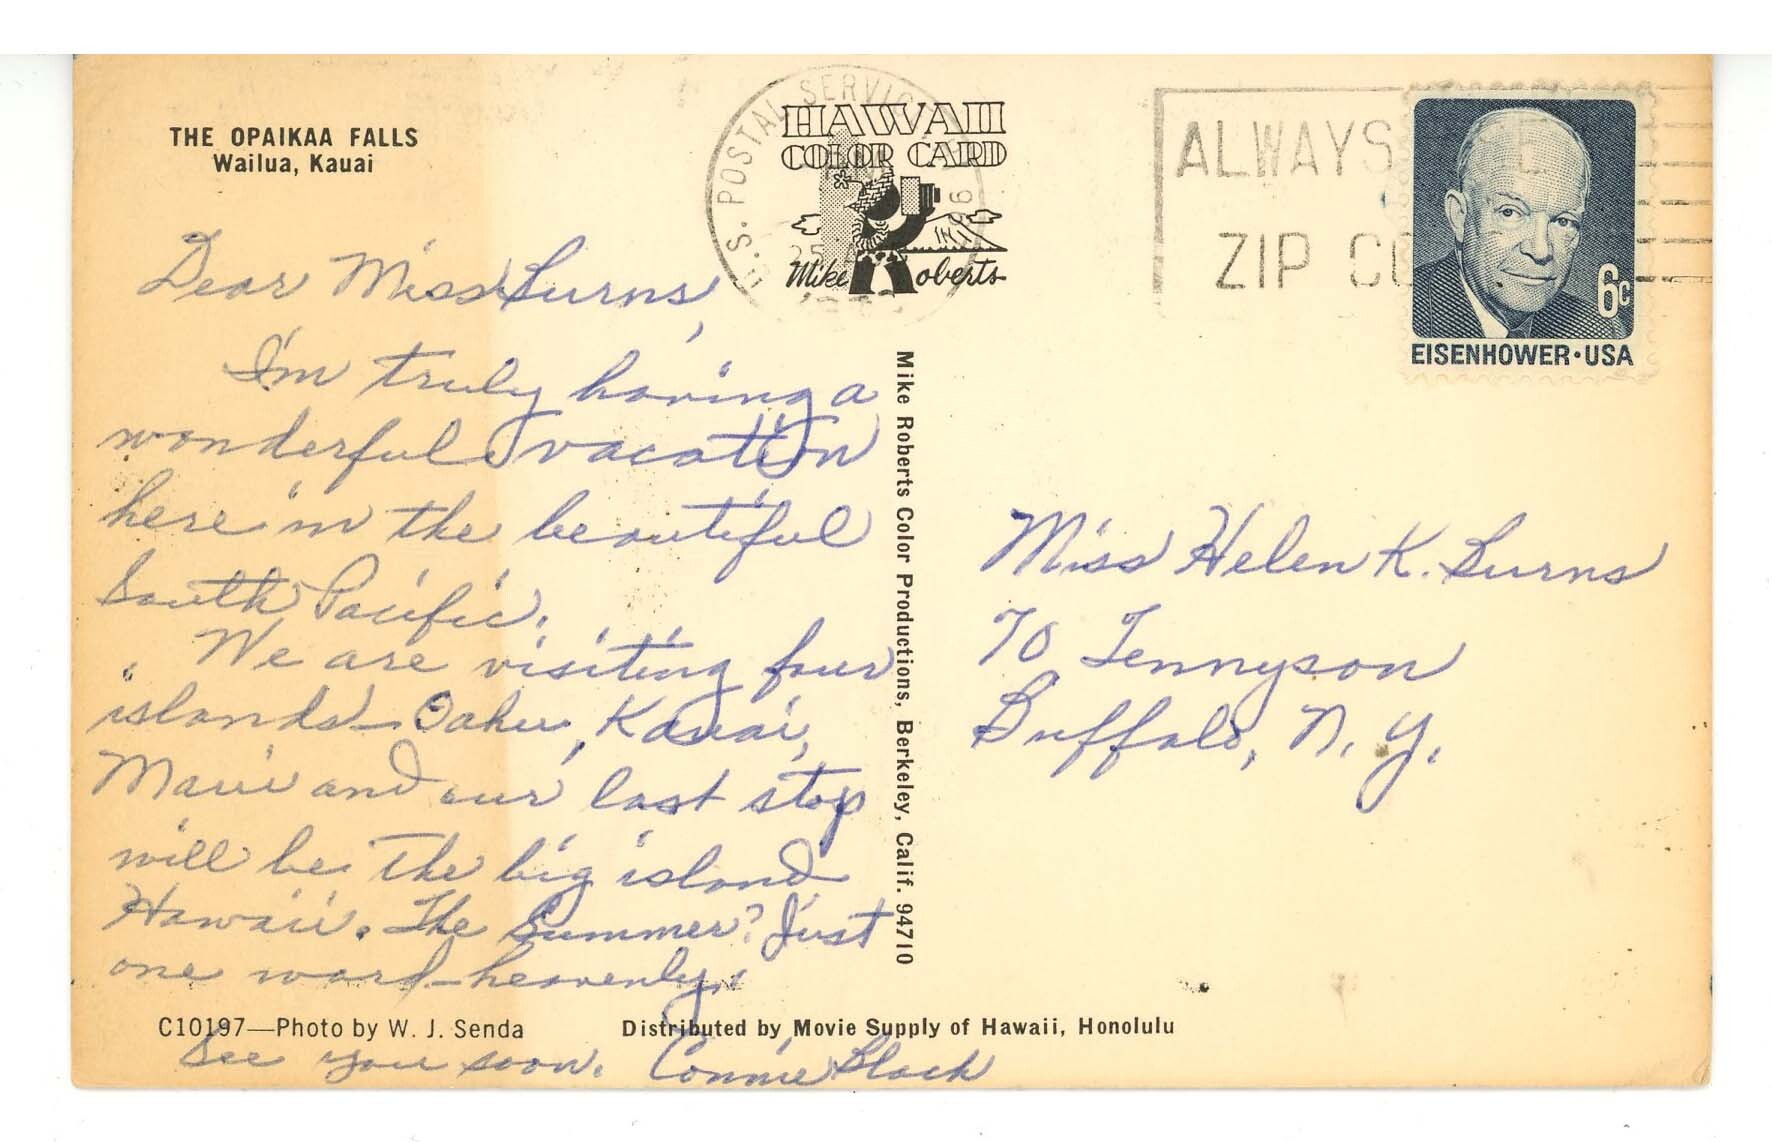 THE OPAIKAA FALLS
Wailua, Kauai
HAWAII
COLOR CARD
Mike Roberts
U.S. POSTAL SERVICE
ALWAYS
ZIP CO
6c
EISENHOWER·USA
Dear Miss Burns,
I'm truly having a
wonderful vacation
here in the beautiful
South Pacific.
We are visiting four
islands - Oahu, Kauai,
Maui and our last stop
will be the big island
Hawaii. The Summer? Just
one word - heavenly.
See you soon. Connie Black
Mike Roberts Color Productions, Berkeley, Calif. 94710
Miss Helen K. Burns
70 Tennyson
Buffalo, N. Y.
C10197—Photo by W. J. Senda
Distributed by Movie Supply of Hawaii, Honolulu